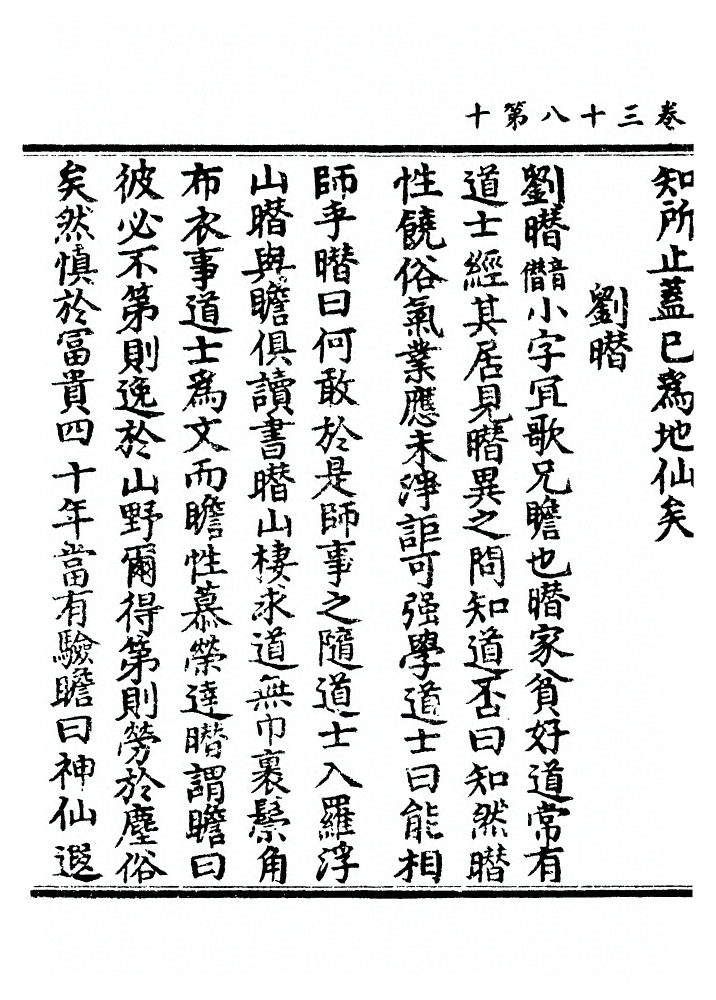 卷三十八第十
知所止蓋已爲地仙矣
劉㬱
劉㬱音僣小字冝歌兄瞻也㬱家貧好道常有
道士經其居見㬱異之問知道否曰知然㬱
性饒俗氣業應未淨詎可强學道士曰能相
師乎㬱曰何敢於是師事之隨道士入羅浮
山㬱與瞻俱讀書㬱山棲求道無巾裹鬃角
布衣事道士爲文而瞻性慕榮達㬱謂瞻曰
彼必不第則逸於山野爾得第則勞於塵俗
矣然慎於冨貴四十年當有驗瞻曰神仙遐